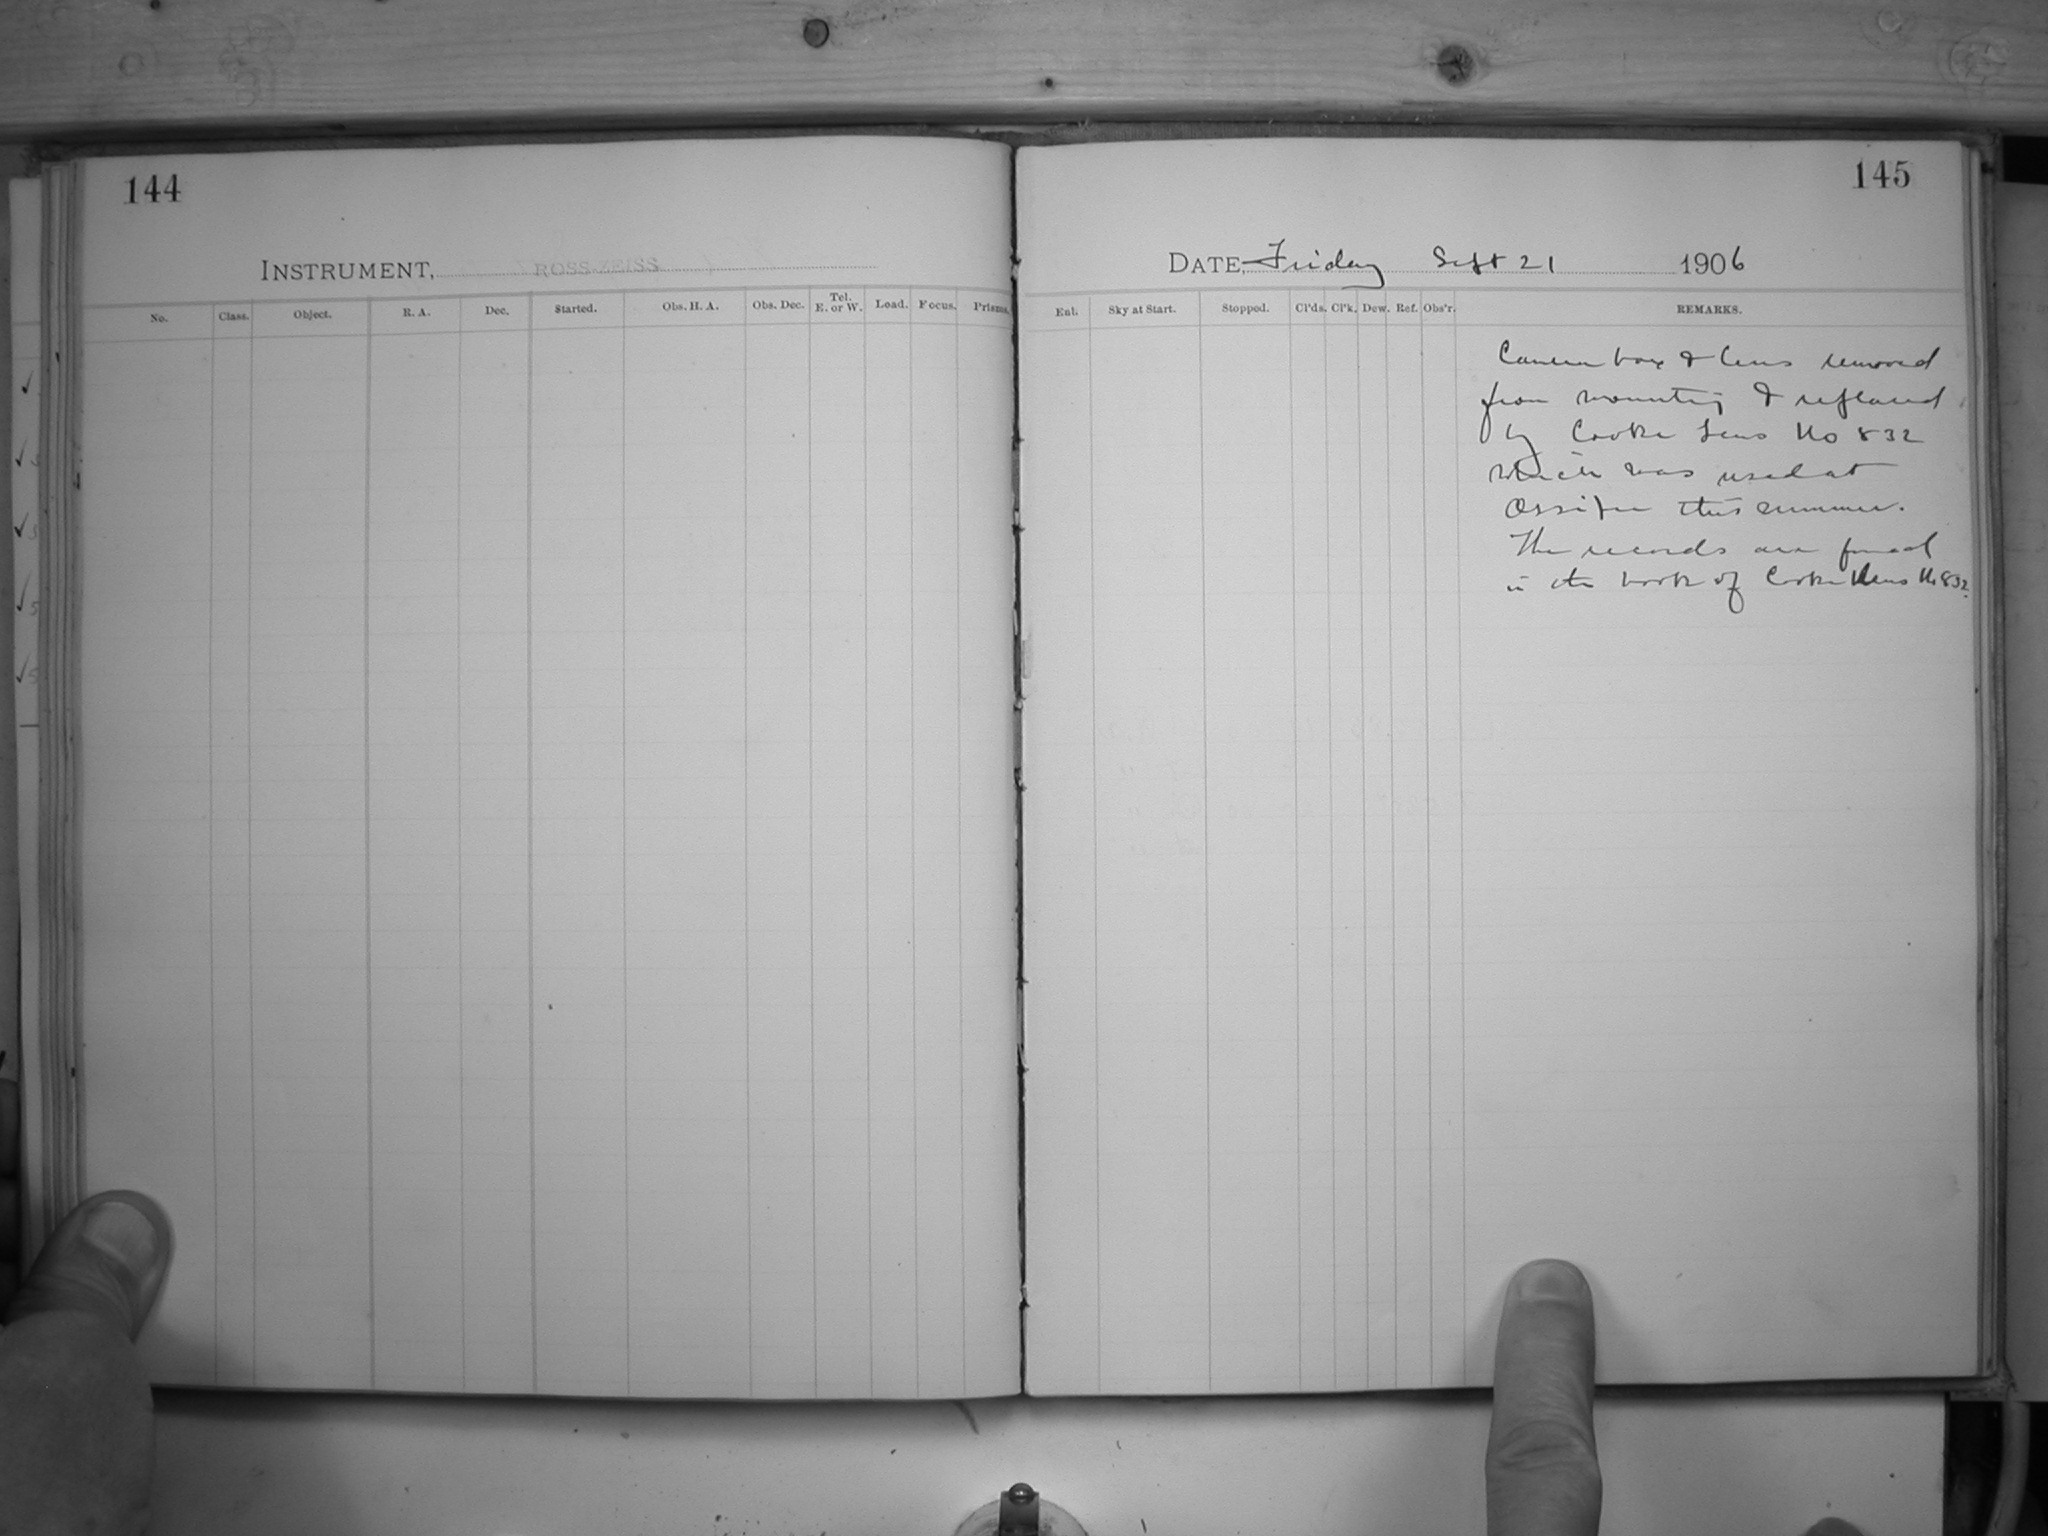 144
INSTRUMENT, ROSS-ZEISS
No. Class. Object. R. A. Dec. Started. Obs. H. A. Obs. Dec. Tel. E. or W. Load. Focus. Prisms.
145
DATE, Friday Sept 21 1906
Ent. Sky at Start. Stopped. Cl'ds. Cl'k. Dew. Ref. Obs'r. REMARKS.
Camera box & lens removed
from mounting & replaced
by Cooke Lens No 832
which was used at
Ossipee this summer.
The records are found
in the book of Cooke Lens No 832.